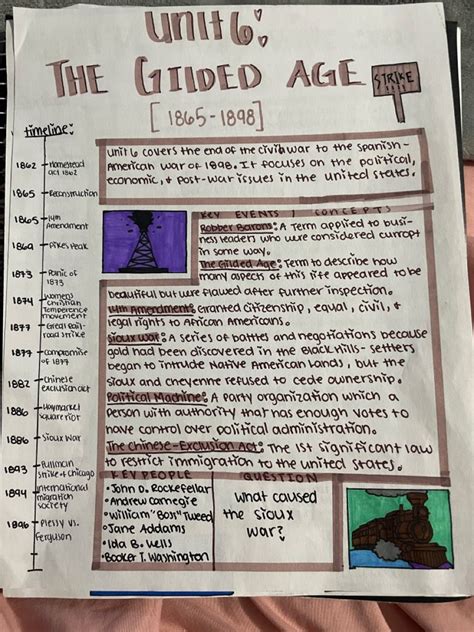 Unit 6:
THE GILDED AGE
STRIKE
[1865-1898]
timeline:
1862 Homestead
act 1862
1865 Reconstruction
1865 14th
Amendment
1869 Pikes Peak
1873 Panic of
1873
1874 Women's
Christian
Temperence
movement
1877 Great Rail-
road strike
1877 compromise
of 1877
1882 Chinese
exclusion act
1886 Haymarket
Square riot
1886 Sioux War
1893 Pullman
Strike of Chicago
1894 International
migration
society
1896 Plessy vs.
Ferguson
Unit 6 covers the end of the civil war to the Spanish-
American war of 1898. It focuses on the political,
economic, & post-war issues in the united states.
KEY EVENTS / CONCEPTS
Robber Barons: A term applied to busi-
ness leaders who were considered currupt
in some way.
The Gilded Age: Term to describe how
many aspects of this life appeared to be
beautiful but were flawed after further inspection.
14th Amendment: Granted citizenship, equal, civil, &
legal rights to African Americans.
Sioux War: A series of battles and negotiations because
gold had been discovered in the Black Hills - settlers
began to intrude Native American Lands, but the
Sioux and cheyenne refused to cede ownership.
Political Machine: A party organization which a
person with authority that has enough votes to
have control over political administration.
The Chinese-Exclusion Act: The 1st significant law
to restrict immigration to the united states.
KEY PEOPLE
• John D. Rockefellar
• Andrew Carnegie
• William "Boss" Tweed
• Jane Addams
• Ida B. Wells
• Booker T. Washington
QUESTION
What caused
the Sioux
War?